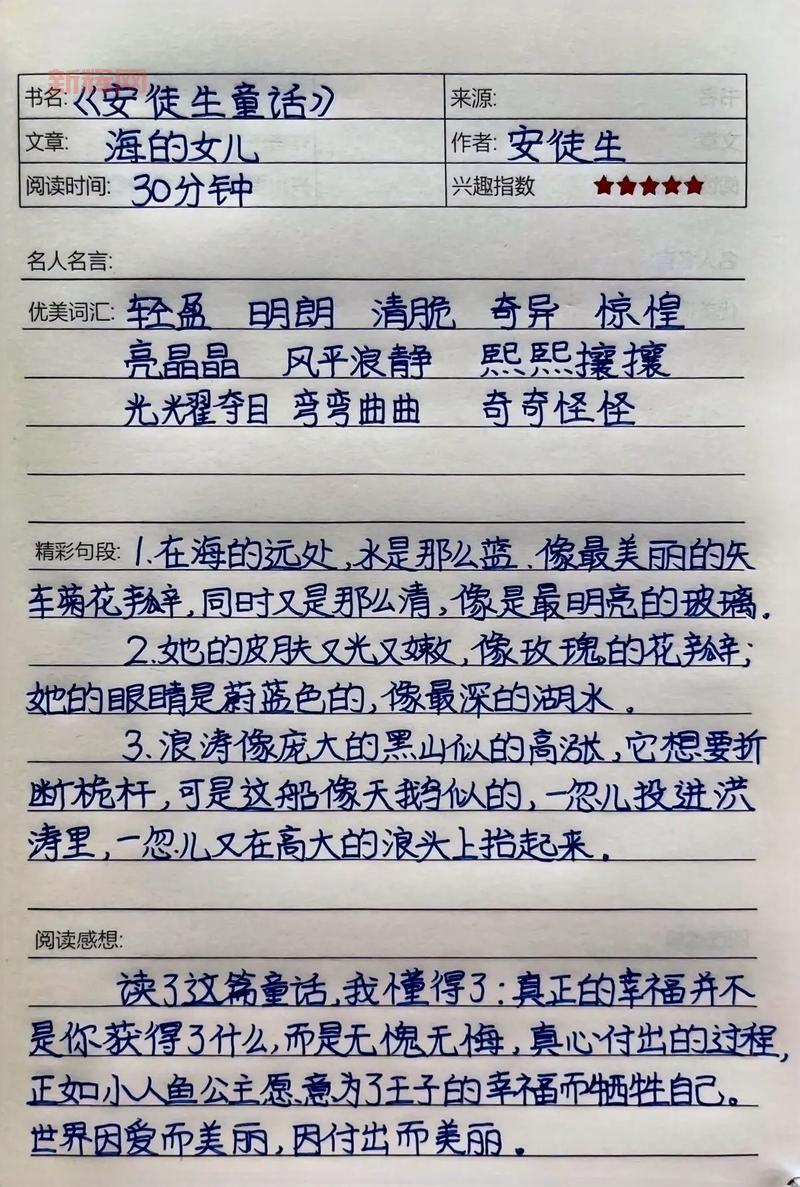 新辉网
书名:《安徒生童话》 来源:
文章: 海的女儿 作者: 安徒生
阅读时间: 30分钟 兴趣指数 ★★★★★
名人名言:
优美词汇: 轻盈 明朗 清脆 奇异 惊惶
亮晶晶 风平浪静 熙熙攘攘
光光耀夺目 弯弯曲曲 奇奇怪怪
精彩句段: 1.在海的远处,水是那么蓝.像最美丽的矢
车菊花瓣,同时又是那么清,像是最明亮的玻璃。
2.她的皮肤又光又嫩,像玫瑰的花瓣;
她的眼睛是蔚蓝色的,像最深的湖水。
3.浪涛像庞大的黑山似的高涨,它想要折
断桅杆,可是这船像天鹅似的,一忽儿投进洪
涛里,一忽儿又在高大的浪头上抬起来。
阅读感想:
读了这篇童话,我懂得了:真正的幸福并不
是你获得了什么,而是无愧无悔,真心付出的过程,
正如小人鱼公主愿意为了王子的幸福而牺牲自己。
世界因爱而美丽,因付出而美丽。